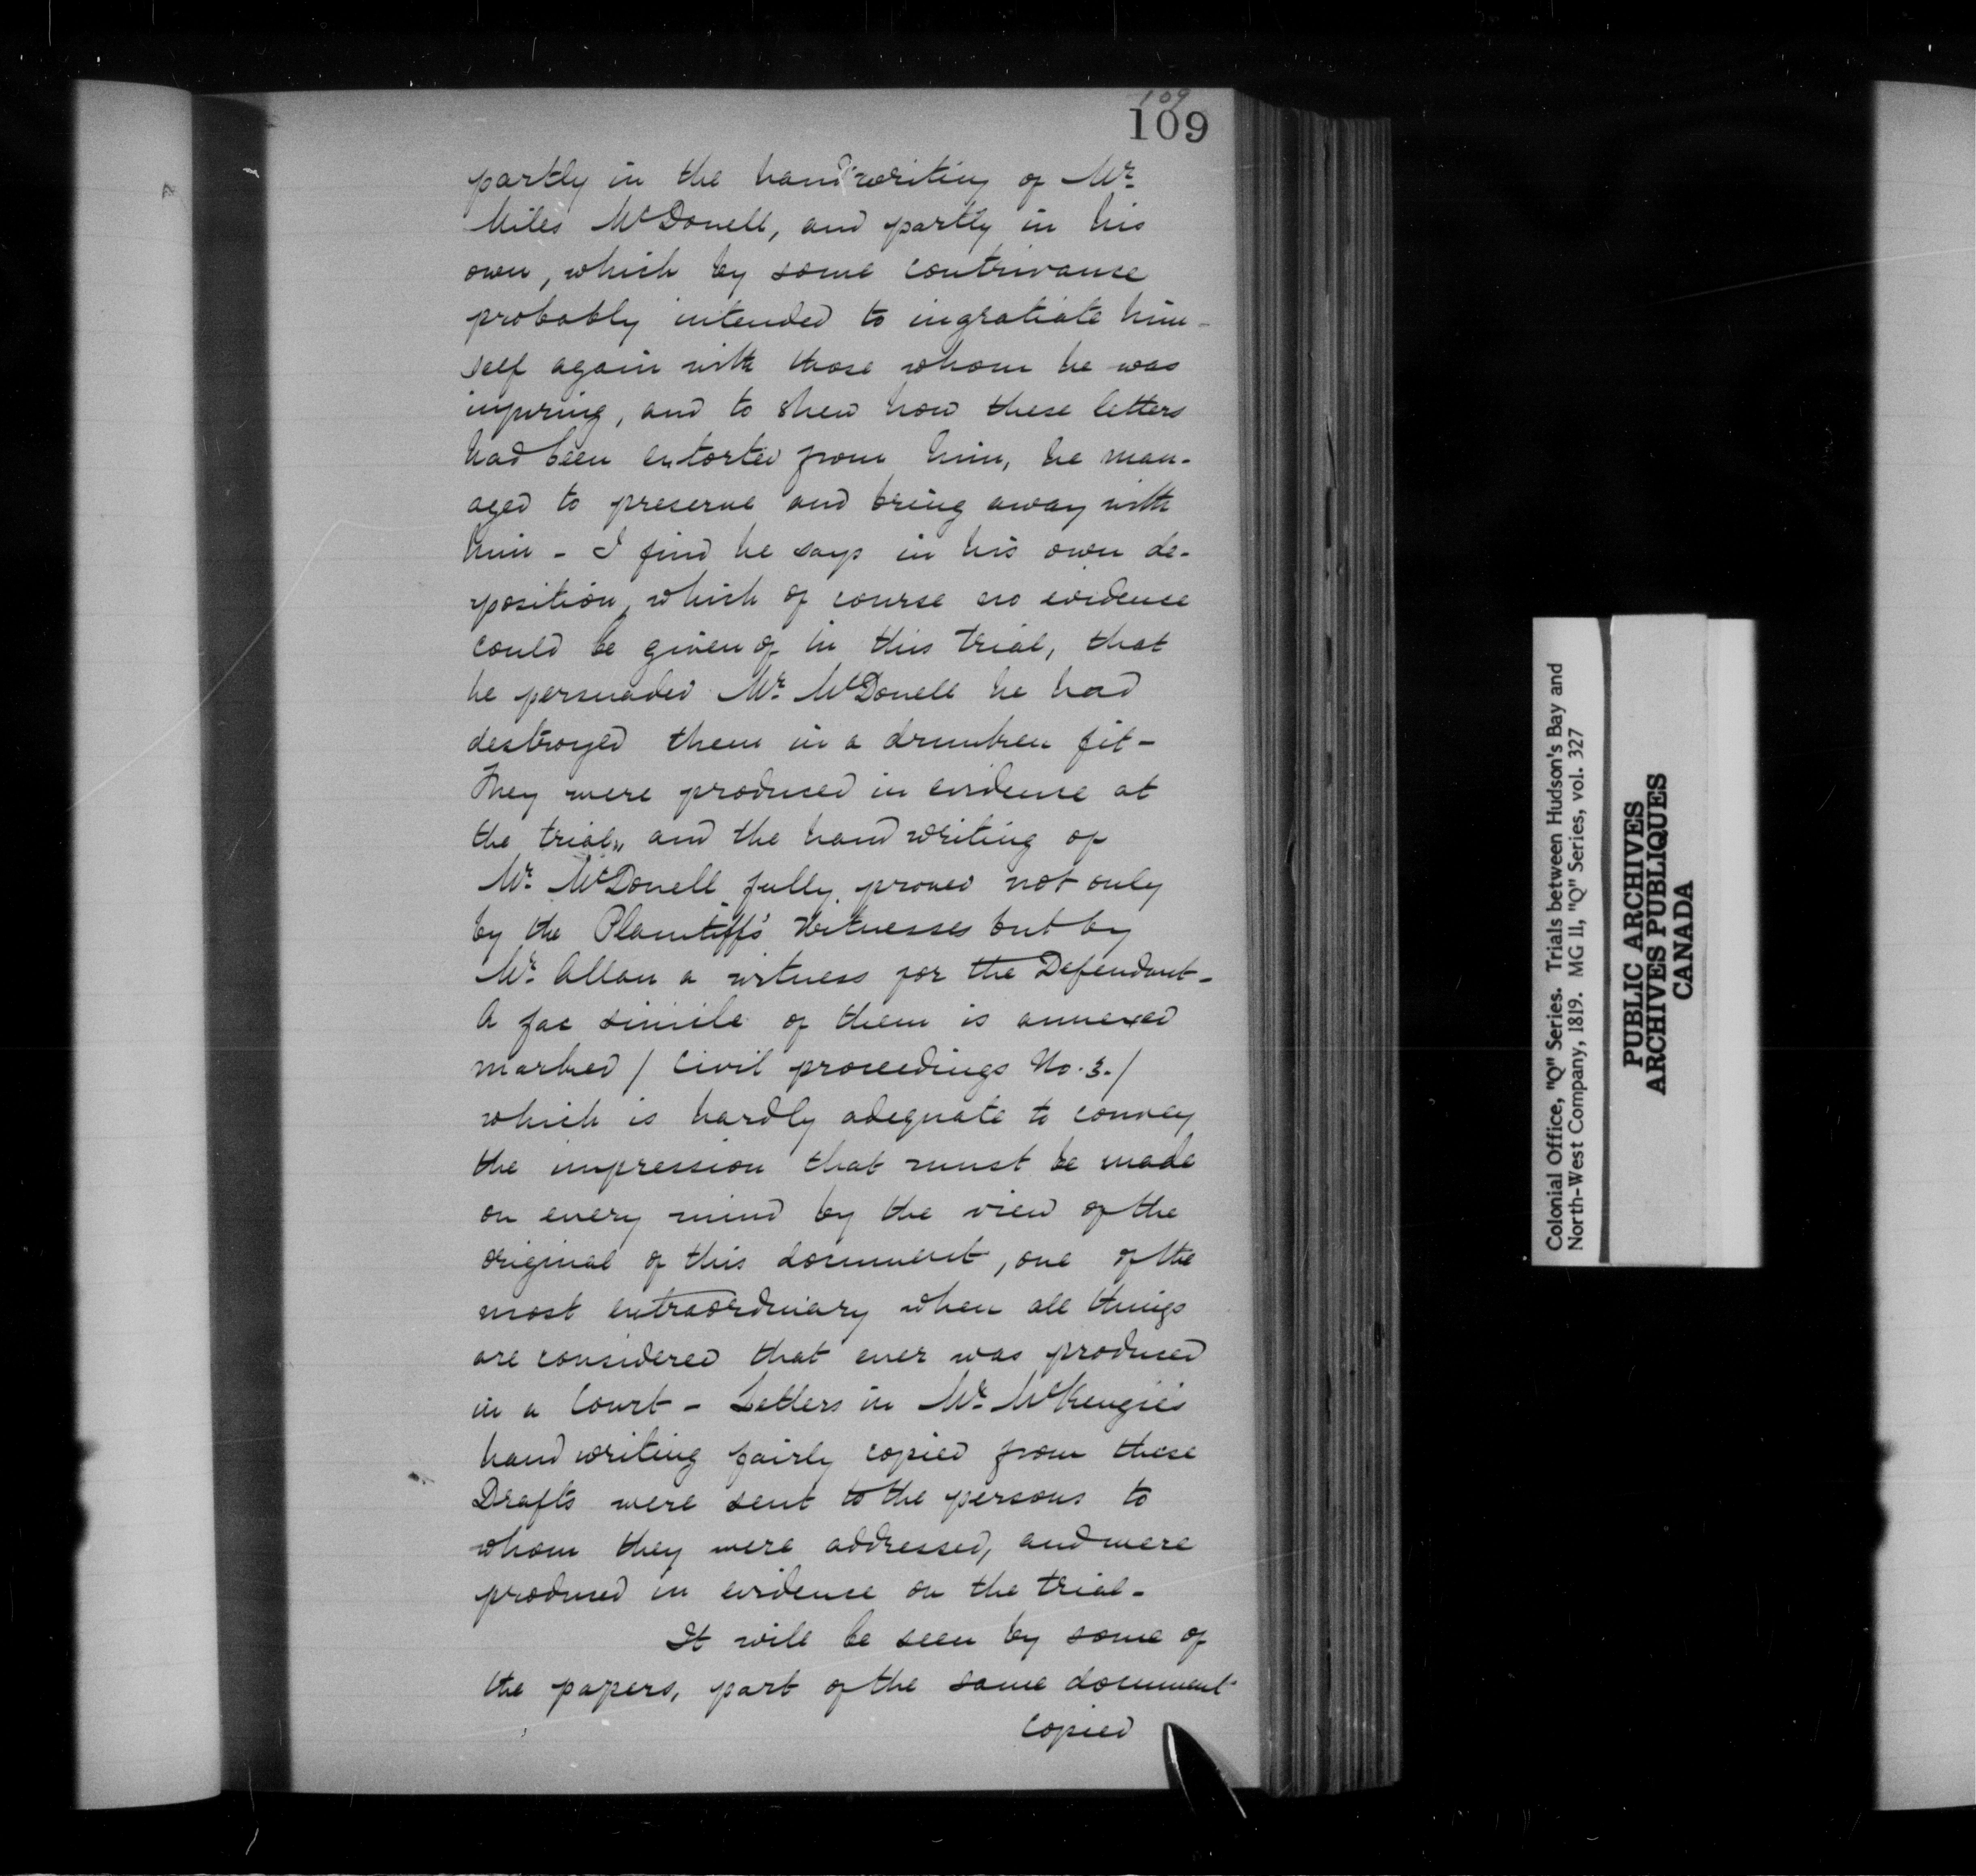 109
109
partly in the handwriting of Mr.
Miles McDonell, and partly in his
own, which by some contrivance
probably intended to ingratiate him-
self again with those whom he was
injuring, and to shew how these letters
had been extorted from him, he man-
aged to preserve and bring away with
him - I find he says in his own de-
position, which of course no evidence
could be given of in this trial, that
he persuaded Mr. McDonell he had
destroyed them in a drunken fit -
They were produced in evidence at
the trial,, and the hand writing of
Mr. McDonell fully proved not only
by the Plaintiff's Witnesses but by
Mr. Allan a witness for the Defendant -
A fac simile of them is annexed
marked / Civil proceedings No. 3. /
which is hardly adequate to convey
the impression that must be made
on every mind by the view of the
original of this document, one of the
most extraordinary when all things
are considered that ever was produced
in a Court - Letters in Mr. McKenzie's
hand writing fairly copied from these
Drafts were sent to the persons to
whom they were addressed, and were
produced in evidence on the trial -
It will be seen by some of
the papers, part of the same document
copied
Colonial Office, "Q" Series. Trials between Hudson's Bay and
North-West Company, 1819. MG 11, "Q" Series, vol. 327
PUBLIC ARCHIVES
ARCHIVES PUBLIQUES
CANADA